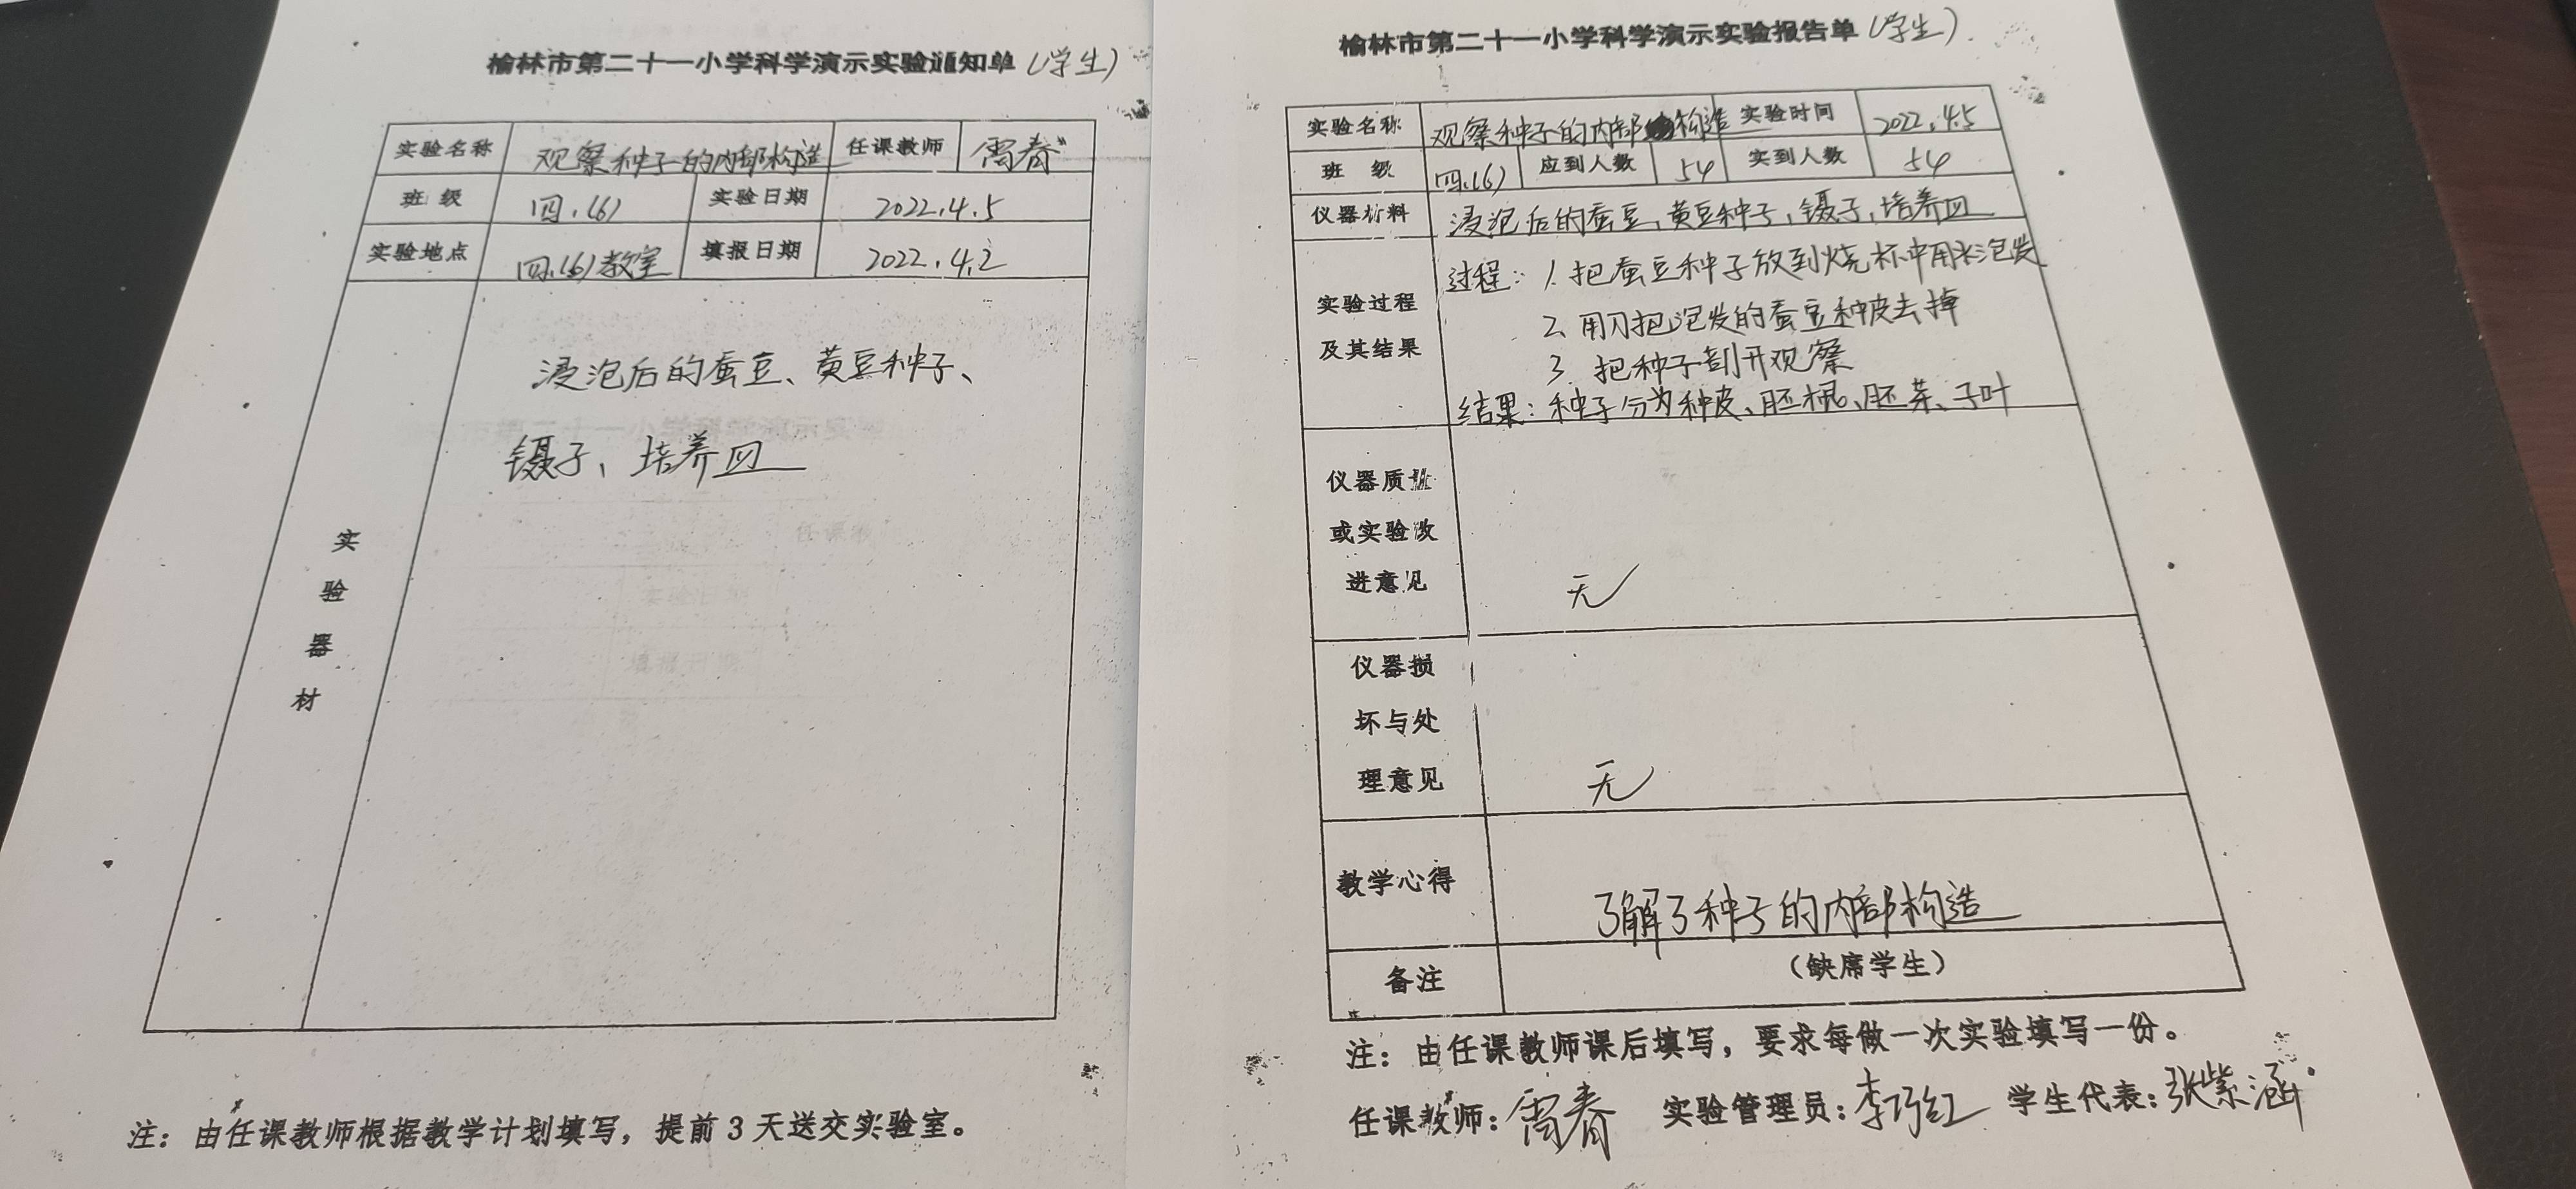 榆林市第二十一小学科学演示实验通知单（学生）
实验名称 观察种子的内部构造 任课教师 雷春
班 级 四.(6) 实验日期 2022.4.5
实验地点 四.(6)教室 填报日期 2022.4.2
实验器材
浸泡后的蚕豆、黄豆种子、
镊子、培养皿
注：由任课教师根据教学计划填写，提前3天送交实验室。
榆林市第二十一小学科学演示实验报告单（学生）
实验名称 观察种子的内部构造 实验时间 2022.4.5
班 级 四.(6) 应到人数 54 实到人数 54
仪器材料 浸泡后的蚕豆、黄豆种子，镊子，培养皿
实验过程
及其结果
过程：1.把蚕豆种子放到烧杯中用水泡发
2.用刀把泡发的蚕豆种皮去掉
3.把种子剖开观察
结果：种子分为种皮、胚根、胚芽、子叶
仪器质量
或实验改
进意见
无
仪器损
坏与处
理意见
无
教学心得 了解了种子的内部构造
备注 （缺席学生）
注：由任课教师课后填写，要求每做一次实验填写一份。
任课教师：雷春 实验管理员：李巧红 学生代表：张紫涵